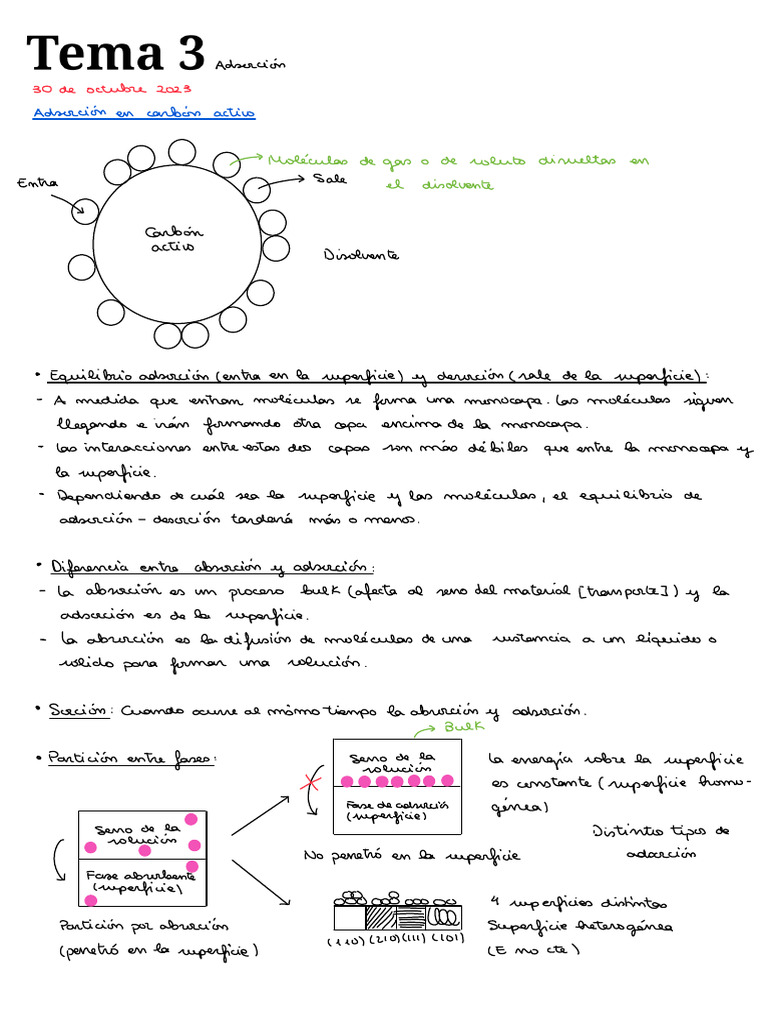 Tema 3 Adsorción
30 de octubre 2023
Adsorción en carbón activo
Moléculas de gas o de soluto disueltas en
el disolvente
Entra
Sale
Carbón
activo
Disolvente
• Equilibrio adsorción (entra en la superficie) y desorción (sale de la superficie):
- A medida que entran moléculas se forma una monocapa. Las moléculas siguen
llegando e irán formando otra capa encima de la monocapa.
- Las interacciones entre estas dos capas son más débiles que entre la monocapa y
la superficie.
- Dependiendo de cuál sea la superficie y las moléculas, el equilibrio de
adsorción - desorción tardará más o menos.
• Diferencia entre absorción y adsorción:
- La absorción es un proceso bulk (afecta al seno del material [transporte]) y la
adsorción es de la superficie.
- La absorción es la difusión de moléculas de una sustancia a un líquido o
sólido para formar una solución.
• Sorción: Cuando ocurre al mismo tiempo la absorción y adsorción.
Bulk
• Partición entre fases:
Seno de la
solución
Fase de adsorción
(superficie)
La energía sobre la superficie
es constante (superficie homo-
génea)
Seno de la
solución
Fase absorbente
(superficie)
Distintos tipos de
adsorción
No penetró en la superficie
Partición por absorción
(penetró en la superficie)
(110) (210) (111) (101)
4 superficies distintas
Superficie heterogénea
(E no cte)